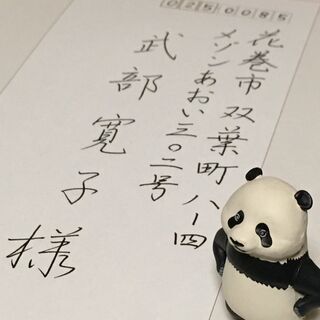 0250085
花巻市双葉町八ー四
メゾンあおい三〇二号
武部寛子様